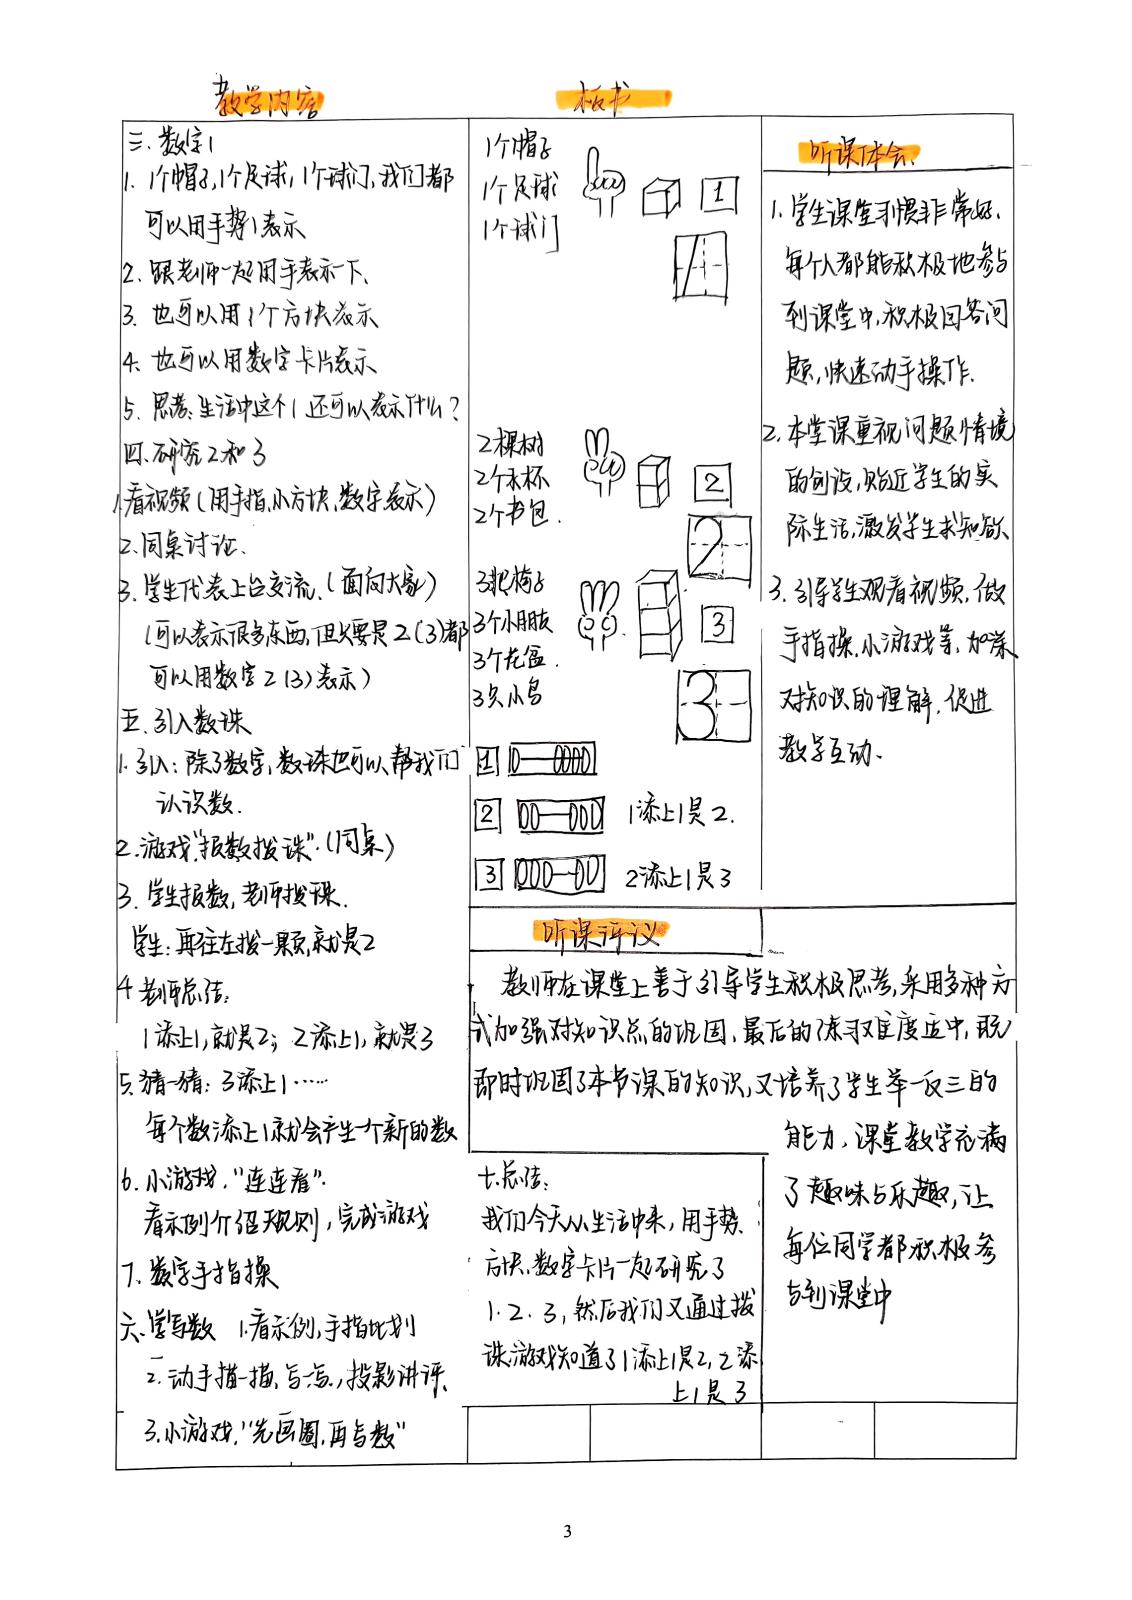 教学内容
三.数字1
1. 1个帽子,1个足球,1个球门,我们都
可以用手势1表示
2. 跟老师一起用手表示一下.
3. 也可以用1个方块表示
4. 也可以用数字卡片表示
5. 思考:生活中这个1还可以表示什么?
四.研究2和3
1.看视频(用手指,小方块,数字表示)
2.同桌讨论.
3.学生代表上台交流.(面向大家)
(可以表示很多东西,但只要是2(3)都
可以用数字2(3)表示)
五.引入数珠
1.引入:除了数字,数珠也可以帮我们
认识数.
2.游戏"报数拨珠".(同桌)
3.学生报数,老师拨珠.
学生:再往左拨一颗,就是2
4 老师总结:
1添上1,就是2; 2添上1,就是3
5.猜一猜:3添上1……
每个数添上1就会产生一个新的数
6.小游戏."连连看".
看示例介绍规则,完成游戏
7.数字手指操
六.学写数 1.看示例,手指比划
2.动手描一描,写一写,投影讲评.
3.小游戏."先画圈,再写数"
板书
1个帽子
1个足球
1个球门
1
1
2棵树
2个水杯
2个书包.
2
2
3把椅子
3个小朋友
3个花盆.
3只小鸟
3
3
1
2 1添上1是2.
3 2添上1是3
听课体会.
1.学生课堂习惯非常好.
每个人都能积极地参与
到课堂中,积极回答问
题,快速动手操作.
2.本堂课重视问题情境
的创设,贴近学生的实
际生活,激发学生求知欲
3.引导学生观看视频,做
手指操.小游戏等,加深
对知识的理解.促进
教学互动.
听课评议
教师在课堂上善于引导学生积极思考,采用多种方
式加强对知识点的巩固,最后的练习难度适中,既
即时巩固了本节课的知识,又培养了学生举一反三的
能力,课堂教学充满
了趣味与乐趣,让
每位同学都积极参
与到课堂中
七.总结:
我们今天从生活中来,用手势.
方块.数字卡片一起研究了
1.2.3,然后我们又通过拨
珠游戏知道了1添上1是2,2添
上1是3
3